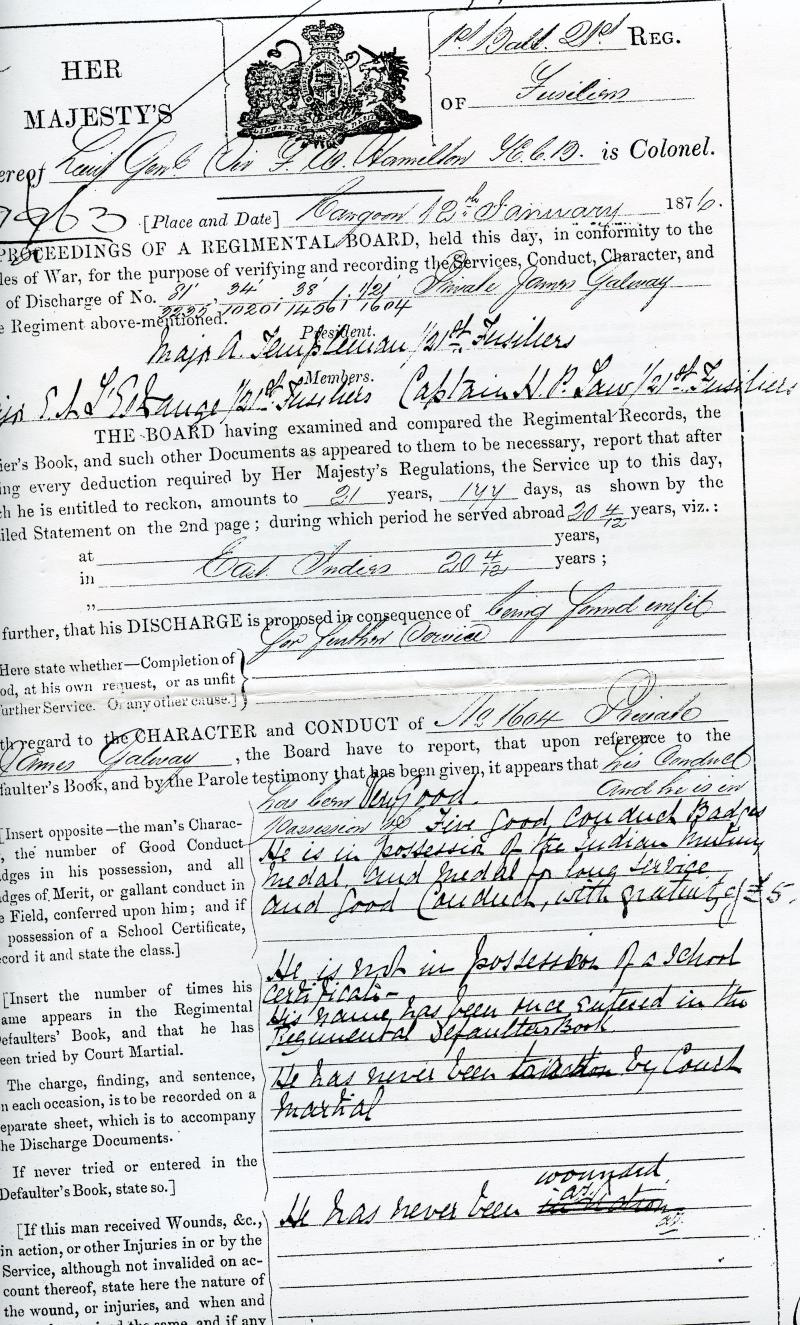 HER
MAJESTY'S
1st Batt. 21st REG.
OF Fusiliers
ereof Lieut Genl Sir F. W. Hamilton K.C.B. is Colonel.
7963 [Place and Date] Rangoon 12th January 1876.
PROCEEDINGS OF A REGIMENTAL BOARD, held this day, in conformity to the
les of War, for the purpose of verifying and recording the Services, Conduct, Character, and
of Discharge of No. 31' 34' 38' 1/21' Private James Galway
1020 1604
e Regiment above-mentioned.
President.
Major A. Templeman 1/21st Fusiliers
Members.
E. A. L'Estrange 1/21st Fusiliers Captain H. P. Law 1/21st Fusiliers
THE BOARD having examined and compared the Regimental Records, the
ier's Book, and such other Documents as appeared to them to be necessary, report that after
ing every deduction required by Her Majesty's Regulations, the Service up to this day,
ch he is entitled to reckon, amounts to 21 years, 177 days, as shown by the
iled Statement on the 2nd page; during which period he served abroad 20 4/12 years, viz.:
at years,
in East Indies 20 4/12 years;
"
further, that his DISCHARGE is proposed in consequence of being found unfit
for further Service
Here state whether—Completion of
od, at his own request, or as unfit
further Service. Or any other cause.]
th regard to the CHARACTER and CONDUCT of No 1604 Private
James Galway, the Board have to report, that upon reference to the
faulter's Book, and by the Parole testimony that has been given, it appears that his Conduct
has been Very Good. And he is in
possession of Five Good Conduct Badges
He is in possession of the Indian Mutiny
medal and medal for long service
and Good Conduct, with gratuity of £5.
[Insert opposite—the man's Charac-
, the number of Good Conduct
dges in his possession, and all
dges of Merit, or gallant conduct in
e Field, conferred upon him; and if
possession of a School Certificate,
ecord it and state the class.]
He is not in possession of a School
certificate
His name has been once entered in the
Regimental Defaulters Book
He has never been by Court
Martial
[Insert the number of times his
ame appears in the Regimental
Defaulters' Book, and that he has
een tried by Court Martial.
The charge, finding, and sentence,
n each occasion, is to be recorded on a
eparate sheet, which is to accompany
he Discharge Documents.
If never tried or entered in the
Defaulter's Book, state so.]
wounded
He has never been in action
[If this man received Wounds, &c.,
in action, or other Injuries in or by the
Service, although not invalided on ac-
count thereof, state here the nature of
the wound, or injuries, and when and
the same, and if any